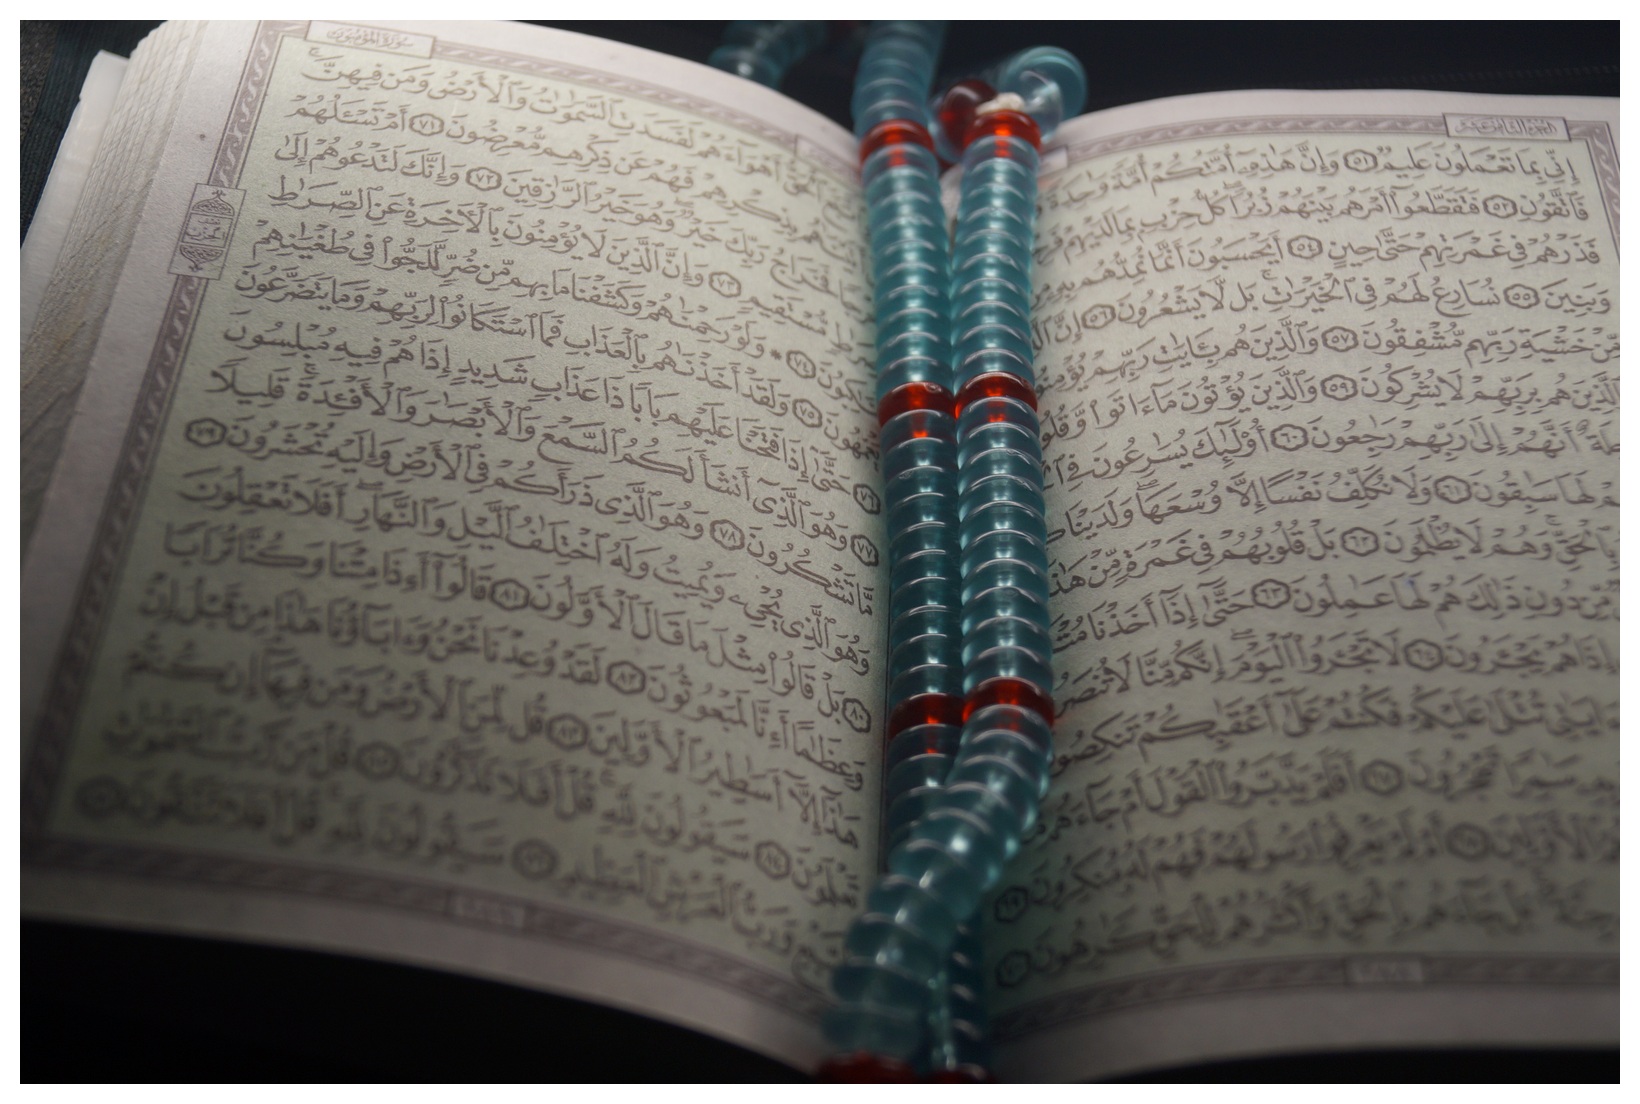 الجزء الثامن عشر
إِنِّي بِمَا تَعْمَلُونَ عَلِيمٌ ٥١ وَإِنَّ هَٰذِهِۦٓ أُمَّتُكُمْ أُمَّةً وَٰحِدَةً
فَٱتَّقُونِ ٥٢ فَتَقَطَّعُوٓا۟ أَمْرَهُم بَيْنَهُمْ زُبُرًا ۖ كُلُّ حِزْبٍۭ بِمَا لَدَيْهِمْ
فَذَرْهُمْ فِي غَمْرَتِهِمْ حَتَّىٰ حِينٍ ٥٤ أَيَحْسَبُونَ أَنَّمَا نُمِدُّهُم بِهِۦ
وَبَنِينَ ٥٥ نُسَارِعُ لَهُمْ فِي ٱلْخَيْرَٰتِ ۚ بَل لَّا يَشْعُرُونَ ٥٦ إِنَّ
مِّنْ خَشْيَةِ رَبِّهِم مُّشْفِقُونَ ٥٧ وَٱلَّذِينَ هُم بِـَٔايَٰتِ رَبِّهِمْ يُؤْمِنُونَ
وَٱلَّذِينَ هُم بِرَبِّهِمْ لَا يُشْرِكُونَ ٥٩ وَٱلَّذِينَ يُؤْتُونَ مَآ ءَاتَوا۟ وَّقُلُوبُهُمْ
أَنَّهُمْ إِلَىٰ رَبِّهِمْ رَٰجِعُونَ ٦٠ أُو۟لَٰٓئِكَ يُسَٰرِعُونَ فِي
لَهَا سَٰبِقُونَ ٦١ وَلَا نُكَلِّفُ نَفْسًا إِلَّا وُسْعَهَا ۖ وَلَدَيْنَا
بِٱلْحَقِّ ۚ وَهُمْ لَا يُظْلَمُونَ ٦٢ بَلْ قُلُوبُهُمْ فِي غَمْرَةٍ مِّنْ هَٰذَا
مِّن دُونِ ذَٰلِكَ هُمْ لَهَا عَٰمِلُونَ ٦٣ حَتَّىٰٓ إِذَآ أَخَذْنَا
إِذَا هُمْ يَجْـَٔرُونَ ٦٤ لَا تَجْـَٔرُوا۟ ٱلْيَوْمَ ۖ إِنَّكُم مِّنَّا لَا تُنصَرُونَ
تُتْلَىٰ عَلَيْكُمْ فَكُنتُمْ عَلَىٰٓ أَعْقَٰبِكُمْ تَنكِصُونَ
سَٰمِرًا تَهْجُرُونَ ٦٧ أَفَلَمْ يَدَّبَّرُوا۟ ٱلْقَوْلَ أَمْ جَآءَهُم
ٱلْأَوَّلِينَ ٦٨ أَمْ لَمْ يَعْرِفُوا۟ رَسُولَهُمْ فَهُمْ لَهُۥ مُنكِرُونَ ٦٩
جِنَّةٌۢ ۚ بَلْ جَآءَهُم بِٱلْحَقِّ وَأَكْثَرُهُمْ لِلْحَقِّ كَٰرِهُونَ ٧٠
سورة المؤمنون
ٱلْحَقُّ أَهْوَآءَهُمْ لَفَسَدَتِ ٱلسَّمَٰوَٰتُ وَٱلْأَرْضُ وَمَن فِيهِنَّ ۚ
بِذِكْرِهِمْ فَهُمْ عَن ذِكْرِهِم مُّعْرِضُونَ ٧١ أَمْ تَسْـَٔلُهُمْ
فَخَرَاجُ رَبِّكَ خَيْرٌ ۖ وَهُوَ خَيْرُ ٱلرَّٰزِقِينَ ٧٢ وَإِنَّكَ لَتَدْعُوهُمْ إِلَىٰ
صِرَٰطٍ مُّسْتَقِيمٍ ٧٣ وَإِنَّ ٱلَّذِينَ لَا يُؤْمِنُونَ بِٱلْءَاخِرَةِ عَنِ ٱلصِّرَٰطِ
لَنَٰكِبُونَ ٧٤ * وَلَوْ رَحِمْنَٰهُمْ وَكَشَفْنَا مَا بِهِم مِّن ضُرٍّ لَّلَجُّوا۟ فِي طُغْيَٰنِهِمْ
يَعْمَهُونَ ٧٥ وَلَقَدْ أَخَذْنَٰهُم بِٱلْعَذَابِ فَمَا ٱسْتَكَانُوا۟ لِرَبِّهِمْ وَمَا يَتَضَرَّعُونَ
٧٦ حَتَّىٰٓ إِذَا فَتَحْنَا عَلَيْهِم بَابًا ذَا عَذَابٍ شَدِيدٍ إِذَا هُمْ فِيهِ مُبْلِسُونَ
٧٧ وَهُوَ ٱلَّذِيٓ أَنشَأَ لَكُمُ ٱلسَّمْعَ وَٱلْأَبْصَٰرَ وَٱلْأَفْـِٔدَةَ ۚ قَلِيلًا
مَّا تَشْكُرُونَ ٧٨ وَهُوَ ٱلَّذِي ذَرَأَكُمْ فِي ٱلْأَرْضِ وَإِلَيْهِ تُحْشَرُونَ ٧٩
وَهُوَ ٱلَّذِي يُحْيِۦ وَيُمِيتُ وَلَهُ ٱخْتِلَٰفُ ٱلَّيْلِ وَٱلنَّهَارِ ۚ أَفَلَا تَعْقِلُونَ
٨٠ بَلْ قَالُوا۟ مِثْلَ مَا قَالَ ٱلْأَوَّلُونَ ٨١ قَالُوٓا۟ أَءِذَا مِتْنَا وَكُنَّا تُرَابًا
وَعِظَٰمًا أَءِنَّا لَمَبْعُوثُونَ ٨٢ لَقَدْ وُعِدْنَا نَحْنُ وَءَابَآؤُنَا هَٰذَا مِن قَبْلُ إِنْ
هَٰذَآ إِلَّآ أَسَٰطِيرُ ٱلْأَوَّلِينَ ٨٣ قُل لِّمَنِ ٱلْأَرْضُ وَمَن فِيهَآ إِن كُنتُمْ
تَعْلَمُونَ ٨٤ سَيَقُولُونَ لِلَّهِ ۚ قُلْ أَفَلَا تَذَكَّرُونَ ٨٥ قُلْ مَن رَّبُّ ٱلسَّمَٰوَٰتِ
ٱلسَّبْعِ وَرَبُّ ٱلْعَرْشِ ٱلْعَظِيمِ ٨٦ سَيَقُولُونَ لِلَّهِ ۚ قُلْ أَفَلَا تَتَّقُونَ ٨٧